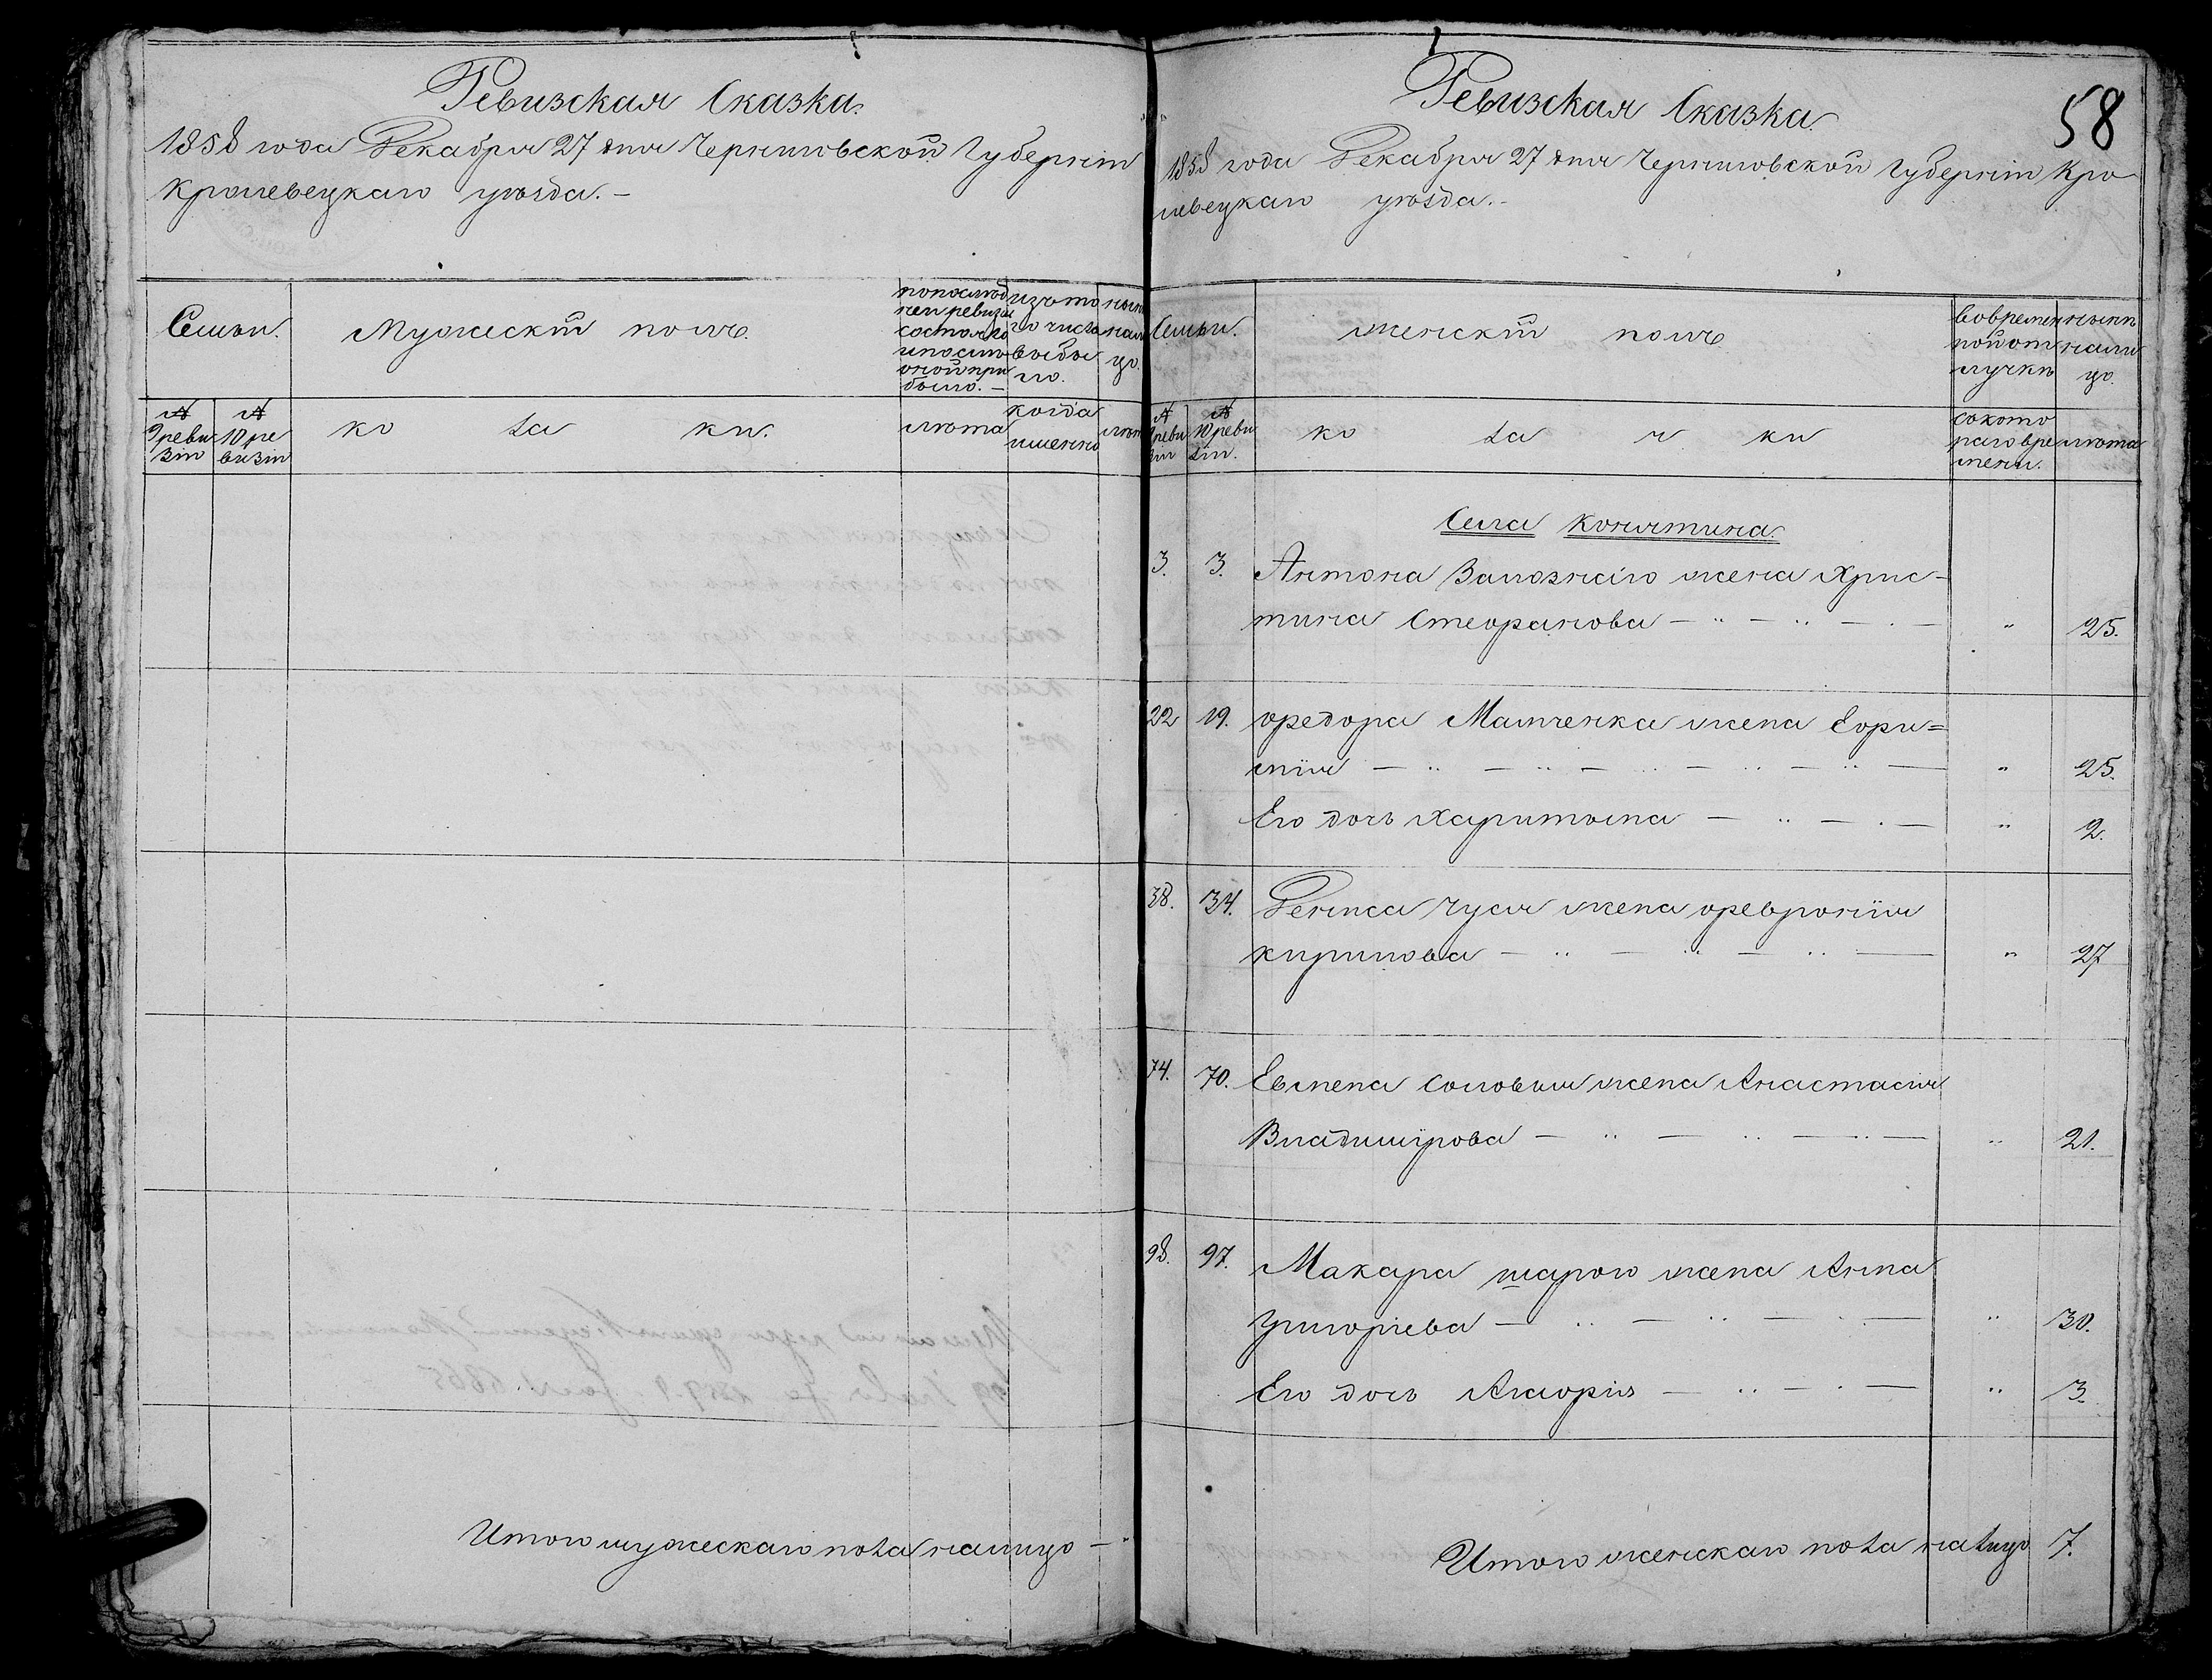 Ревизская Сказка.
1858 года Декабря 27 дня Черниговской Губерніи
Кролевецкаго уѣзда.-
Семьи.
Мужескій полъ.
по послѣд
ней ревизіи
состояло
и послѣ
оной при
было.-
изъ то
го числа
выбы
ло.
нынѣ
нали
цо.
№
9 реви
зіи
№
10 ре
визіи
ко за ки.
лѣта
когда
именно
лѣта
Итого мужескаго пола налицо -
58
Ревизская Сказка.
1858 года Декабря 27 дня Черниговской Губерніи Кро
левецкаго уѣзда.-
Семьи.
женскій полъ
во времен
ной от
лучкѣ
нынѣ
нали
цо.
№
9 реви
зіи
№
10 реви
зіи.
ко за ч ки
съ кото
раго вре
мени.
лѣта
Села Конятина.
3. 3. Антона Залознаго жена Хрис-
тина Стефанова - " - " - " - " 25.
22 19. Федора Мамченка жена Ефи=
мія - " - " - " - " - " - " 25.
Его дочь Харитына - " - " - " 2.
38. 34. Дениса Чуся жена Февронія
Кирилова - " - " - " - " 27
74. 70. Евмена Соловья жена Анастасія
Владимірова - " - " - " - " 21.
98. 97. Макара Шарого жена Анна
Григоріева - " - " - " - " 30.
Его дочь - " - " - " 3.
Итого женскаго пола налицо 7.